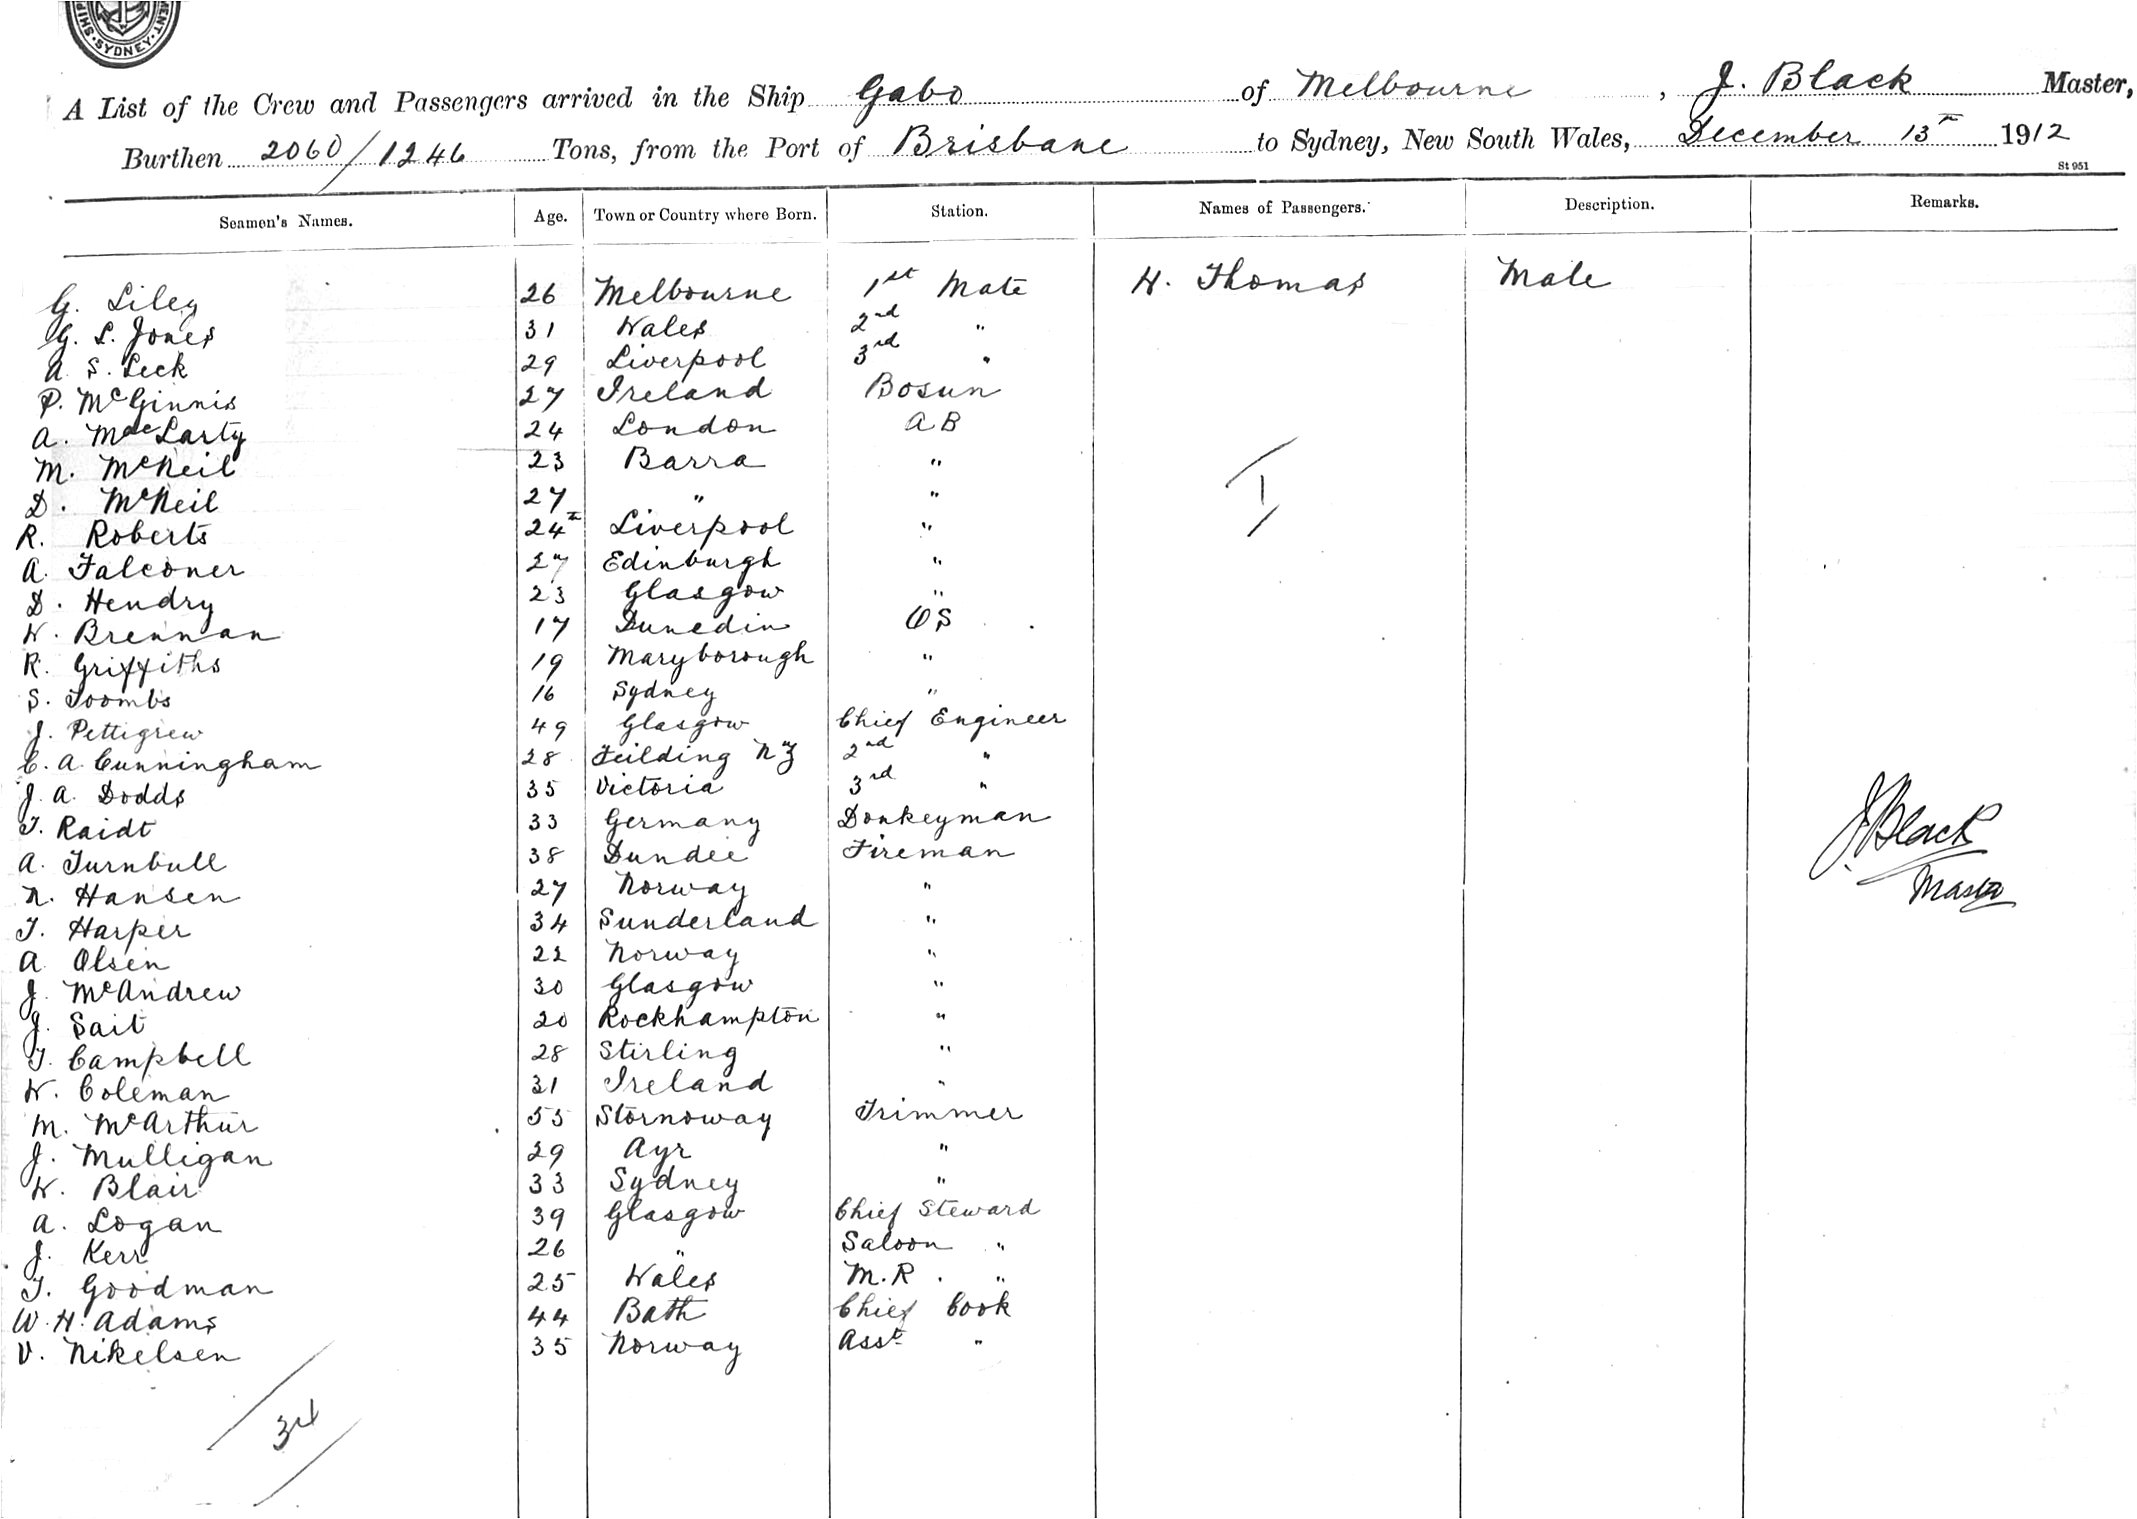 SYDNEY
A List of the Crew and Passengers arrived in the Ship Gabo of Melbourne, J. Black Master,
Burthen 2060/1246 Tons, from the Port of Brisbane to Sydney, New South Wales, December 13th 1912
St 951
Seamen's Names. Age. Town or Country where Born. Station. Names of Passengers. Description. Remarks.
G. Liley 26 Melbourne 1st Mate H. Thomas Male
G. L. Jones 31 Wales 2nd "
A. S. Leck 29 Liverpool 3rd "
P. McGinnis 27 Ireland Bosun
A. MacLarty 24 London A B
M. McNeil 23 Barra "
D. McNeil 27 " "
R. Roberts 24 Liverpool "
A. Falconer 27 Edinburgh "
D. Hendry 23 Glasgow "
W. Brennan 17 Dunedin O S
R. Griffiths 19 Maryborough "
S. Toombs 16 Sydney "
J. Pettigrew 49 Glasgow Chief Engineer
C. A. Cunningham 28 Feilding NZ 2nd "
J. A. Dodds 35 Victoria 3rd "
T. Raidt 33 Germany Donkeyman
A. Turnbull 38 Dundee Fireman
N. Hansen 27 Norway "
T. Harper 34 Sunderland "
A. Olsen 22 Norway "
J. McAndrew 30 Glasgow "
J. Sait 20 Rockhampton "
T. Campbell 28 Stirling "
W. Coleman 31 Ireland "
M. McArthur 55 Stornoway Trimmer
J. Mulligan 29 Ayr "
W. Blair 33 Sydney "
A. Logan 39 Glasgow Chief Steward
J. Kerr 26 " Saloon "
T. Goodman 25 Wales M.R. "
W. H. Adams 44 Bath Chief Cook
V. Nikelsen 35 Norway Asst "
34
1
J. Black
Master